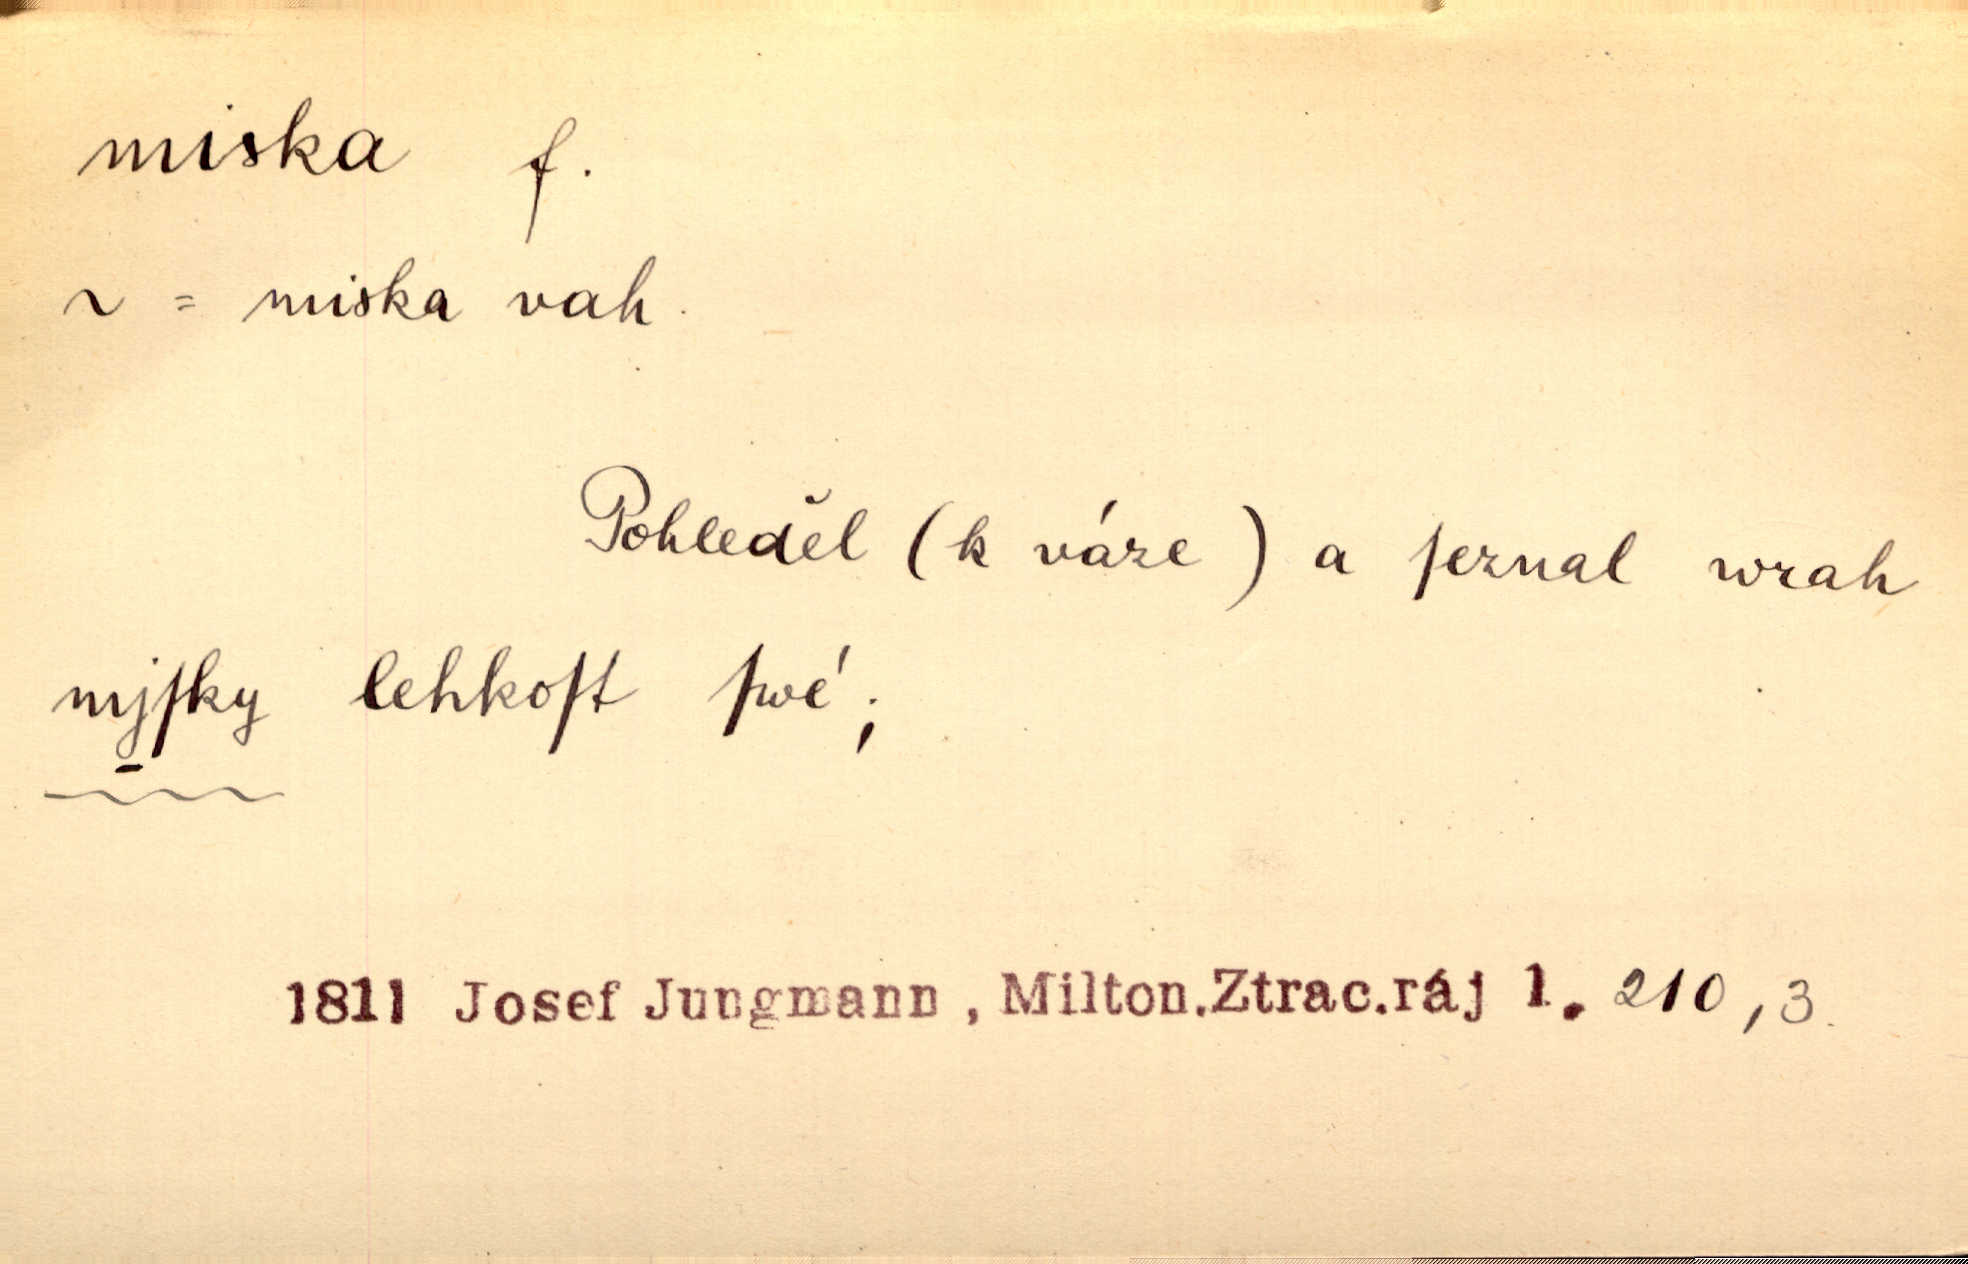 miska f.
~ = miska vah.
Pohleděl (k váze) a ſeznal wrah
mjſky lehkoſt ſwé;
1811 Josef Jungmann, Milton.Ztrac.ráj 1. 210,3.